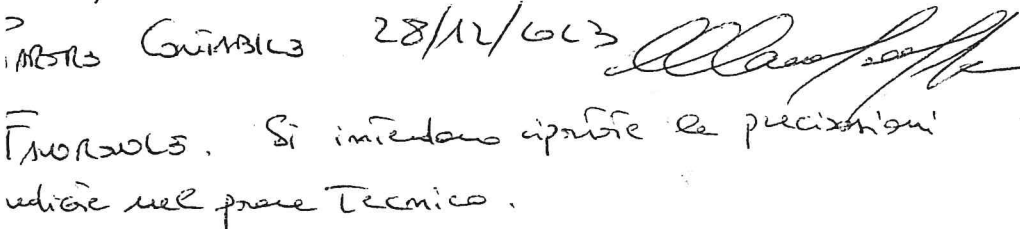 Parere Contabile 28/12/2023
Favorevole. Si intendono riportate le precisazioni
indicate nel parere Tecnico.